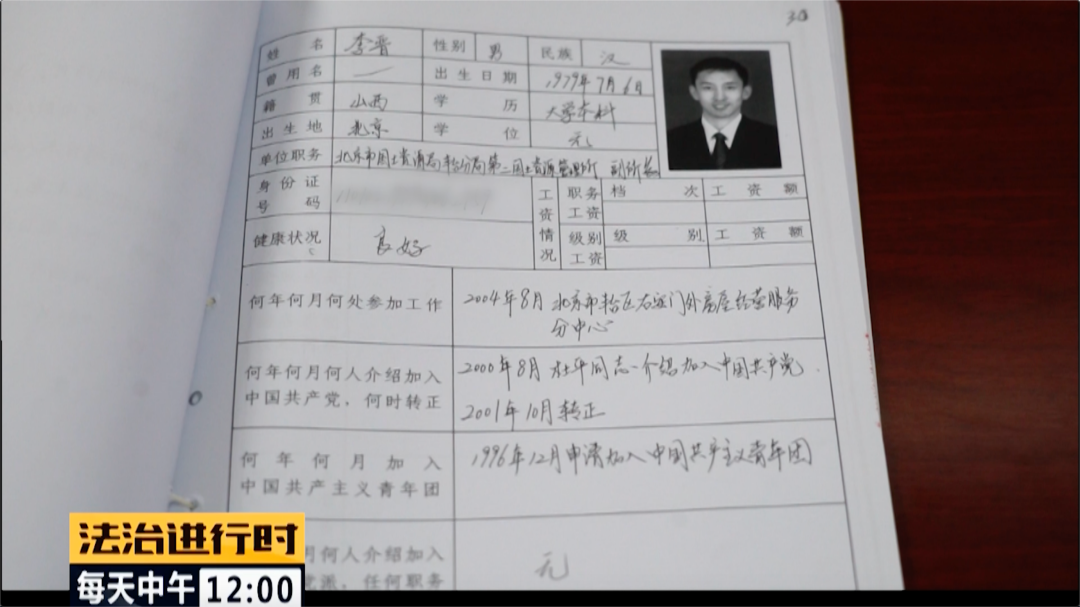 30
姓名 李晋 性别 男 民族 汉
曾用名 一 出生日期 1979年7月6日
籍贯 山西 学历 大学本科
出生地 北京 学位 无
单位职务 北京市国土资源局丰台分局第二国土资源管理所 副所长
身份证号码 工资情况 职务工资 档次 工资额
健康状况 良好 级别工资 级别 工资额
何年何月何处参加工作 2004年8月 北京市丰台区右安门外房屋经营服务
分中心
何年何月何人介绍加入 2000年8月 同志介绍加入中国共产党.
中国共产党、何时转正 2001年10月转正
何年何月加入 1996年12月申请加入中国共产主义青年团
中国共产主义青年团
月何人介绍加入
党派,任何职务 无
法治进行时
每天中午 12:00